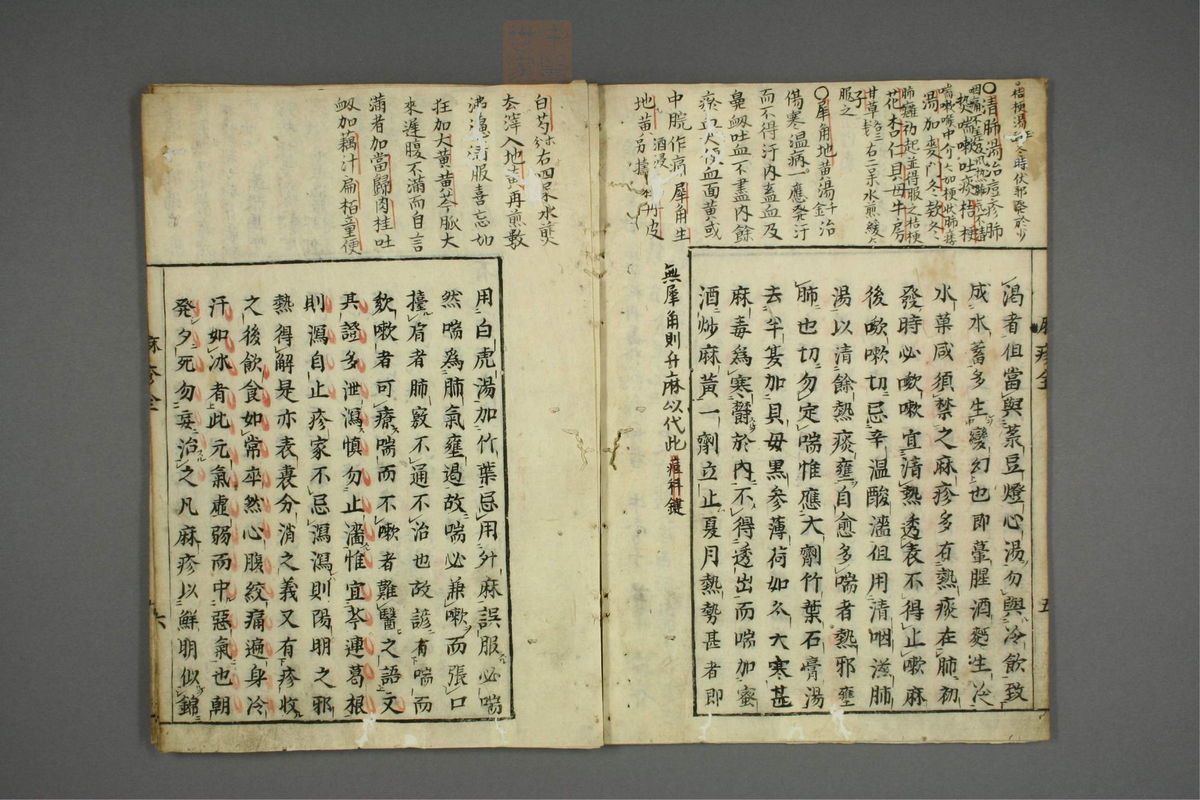 桔梗湯
○清肺湯治痘疹肺
熱喘嗽吐痰桔梗
湯加麥門冬欵冬
肺癰初起並得服之桔梗
甘草
服之
○犀角地黃湯治
傷寒溫病應發汗
而不得汗內蓄血及
鼻衂吐血不盡內餘
瘀血大便血面黃或
中脘作痛犀角生
地黃酒浸另擣牡丹皮
渴者但當與菉豆燈心湯勿與冷飲致
成水蓄多生變幻也即葷腥酒麪生冷
水菓咸須禁之麻疹多有熱痰在肺初
發時必欬嗽宜清熱透表不得止嗽麻
後欬嗽切忌辛溫酸澁但用清咽滋肺
湯以清餘熱痰壅自愈多喘者熱邪壅
肺也切勿定喘惟應大劑竹葉石膏湯
去半夏加貝母黑參薄荷如冬大寒甚
麻毒為寒欝於內不得透出而喘加蜜
酒炒麻黃一劑立止夏月熱勢甚者即
無犀角則升麻以代此痘科鍵
白芍右四味水煎
去滓入地黃再煎數
沸濾清服喜忘如
狂加大黃黃芩脈大
來遲腹不滿而自言
滿者加當歸肉桂吐
衂加藕汁扁柏童便
用白虎湯加竹葉忌用升麻誤服必喘
然喘為肺氣壅遏故喘必兼嗽而張口
擡肩者肺竅不通不治也故諺有喘而
欬嗽者可療喘而不嗽者難醫之語又
其證多泄瀉慎勿止澁惟宜芩連葛根
則瀉自止疹家不忌瀉瀉則陽明之邪
熱得解是亦表裏分消之義又有疹收
之後飲食如常卒然心腹絞痛遍身冷
汗如冰者此元氣虛弱而中惡氣也朝
發夕死勿妄治之凡麻疹以鮮明似錦
麻疹全
六